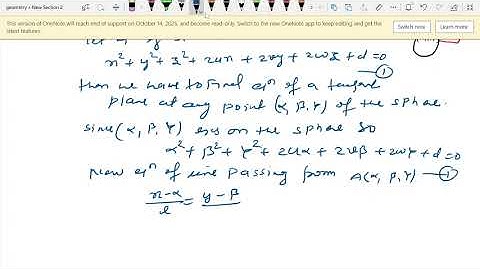 geometry • New Section 2
This version of OneNote will reach end of support on October 14, 2025, and become read-only. Switch to the new OneNote app to keep editing and get the latest features.
Switch now
Learn more
x² + y² + z² + 2ux + 2vy + 2wz + d = 0
①
then we have to find eqⁿ of a tangent
plane at any point (α, β, γ) of the sphere.
since (α, β, γ) lies on the sphere so
α² + β² + γ² + 2uα + 2vβ + 2wγ + d = 0
Now eqⁿ of line passing from A(α, β, γ) — ①
x-α/l = y-β